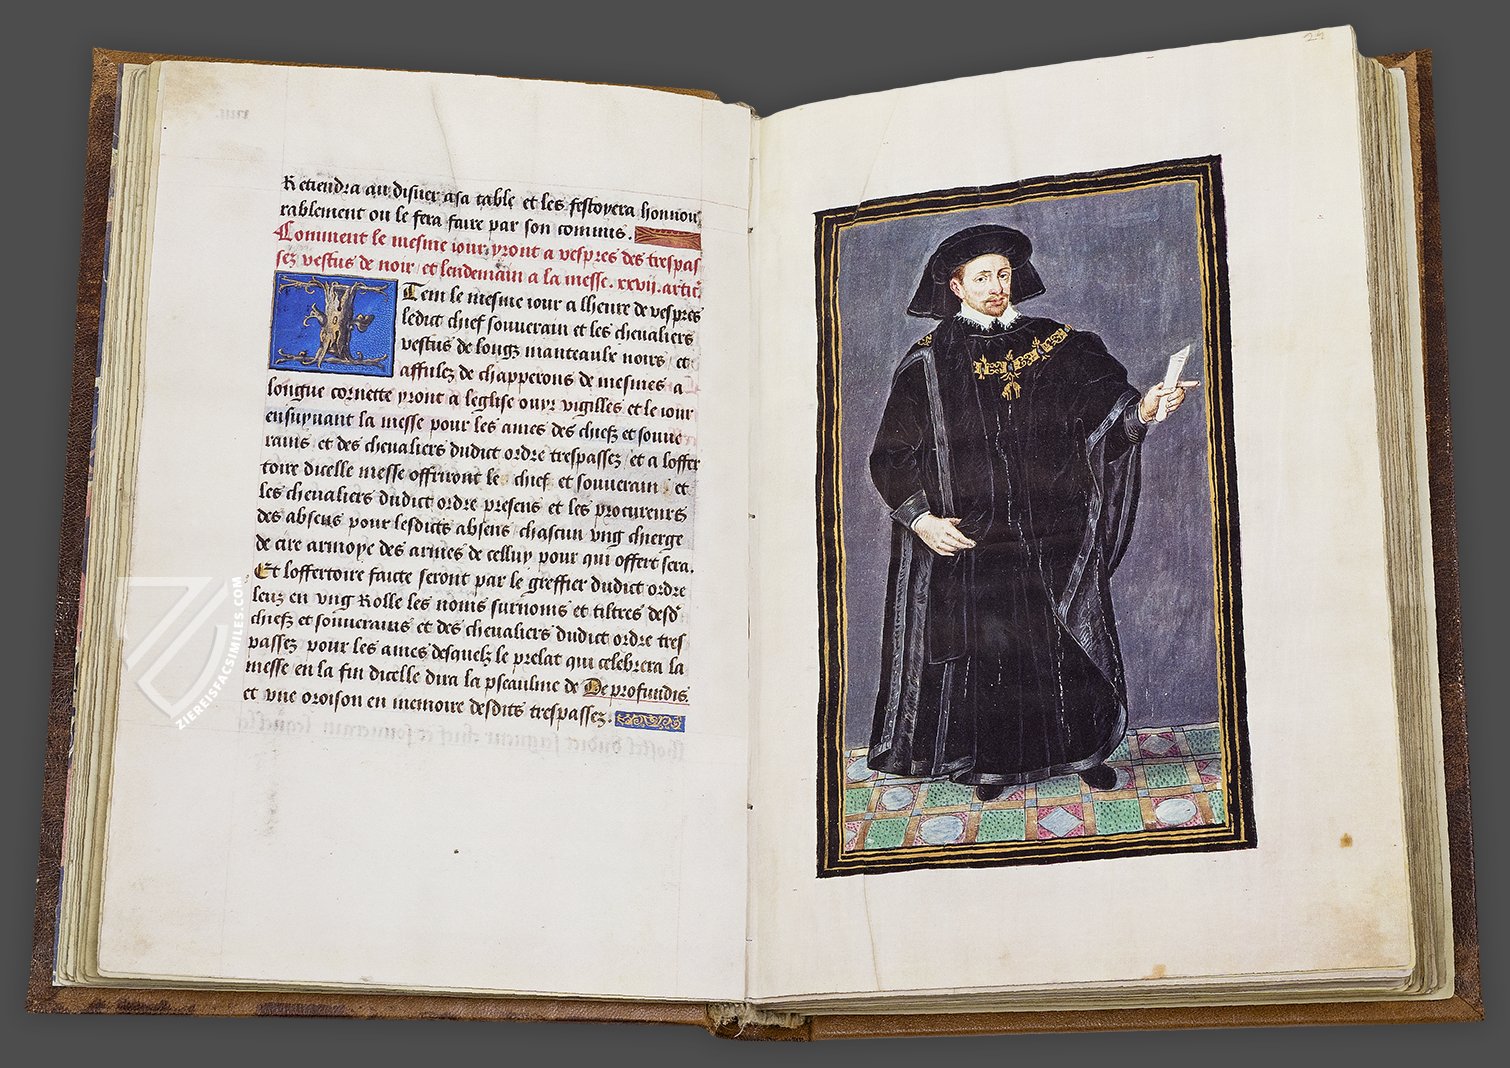 Retiendra au disner asa table et les festoyera honnou
rablement ou le fera faire par son commis.
Comment le mesme iour yront a vespres des trespas
sez vestus de noir et lendemain a la messe. xxvij. artic.
Item le mesme iour a lheure de vespres
ledict chief souuerain et les cheualiers
vestus de longz manteaulx noirs et
affulez de chapperons de mesmes a
longue cornette yront a leglise ouyr vigilles et le iour
ensuyuant la messe pour les ames des chiefz et souue
rains et des cheualiers dudict ordre trespassez et a loffer
toire dicelle messe offriront le chief et souuerain et
les cheualiers dudict ordre presens et les procureurs
des absens pour lesdicts absens chascun vng chierge
de cire armoye des armes de celluy pour qui offert sera.
Et loffertoire faicte seront par le greffier dudict ordre
leuz en vng Rolle les noms surnoms et tiltres desd
chiefz et souuerains et des cheualiers dudict ordre tres
passez pour les ames desquelz le prelat qui celebrera la
messe en la fin dicelle dira la pseaulme de De profundis
et vne oroison en memoire desdits trespassez.
ZIEREISFACSIMILES.COM